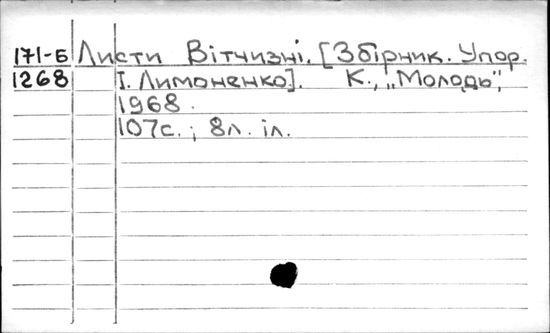 171-Б Листи Вітчизні. [Збірник. Упор.
1268 І. Лимоненко]. К., „Молодь",
1968.
107с. ; 8л. іл.